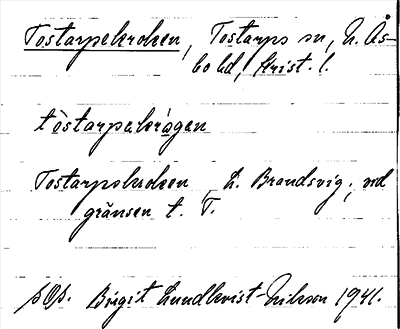 Tostarpekroken, Tostarps sn, N. Ås-
bo hd, Krist. l.
tòstarpekrågen
Tostarpskroken, L. Brandsvig; vid
gränsen t. T.
Birgit Lundkvist-Nilsson 1941.